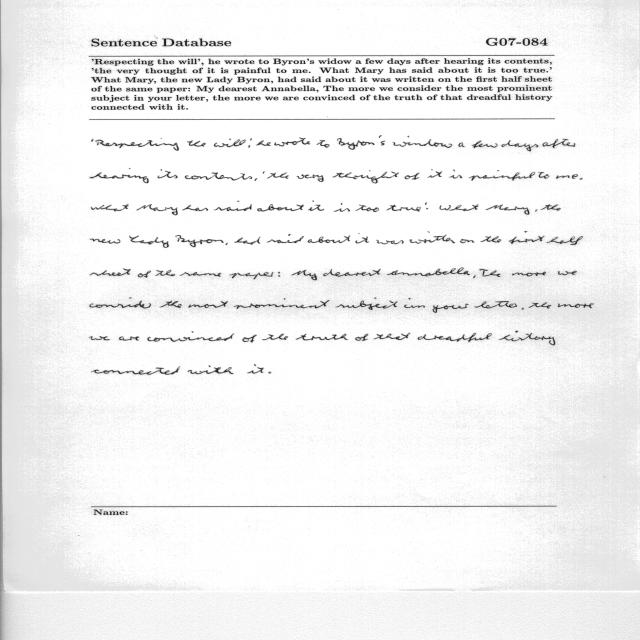 Sentence Database G07-084
'Respecting the will', he wrote to Byron's widow a few days after hearing its contents,
'the very thought of it is painful to me. What Mary has said about it is too true.'
What Mary, the new Lady Byron, had said about it was written on the first half sheet
of the same paper: My dearest Annabella, The more we consider the most prominent
subject in your letter, the more we are convinced of the truth of that dreadful history
connected with it.
'Respecting the will', he wrote to Byron's window a few days after
hearing its contents, 'the very thought of it is painful to me.
What Mary has said about it is too true'. What Mary, the
new Lady Byron, had said about it was written on the first half
sheet of the same paper: My dearest Annabella, The more we
conside the most prominent subject in your letter, the more
we are convinced of the truth of that dreadful history
connected with it.
Name: